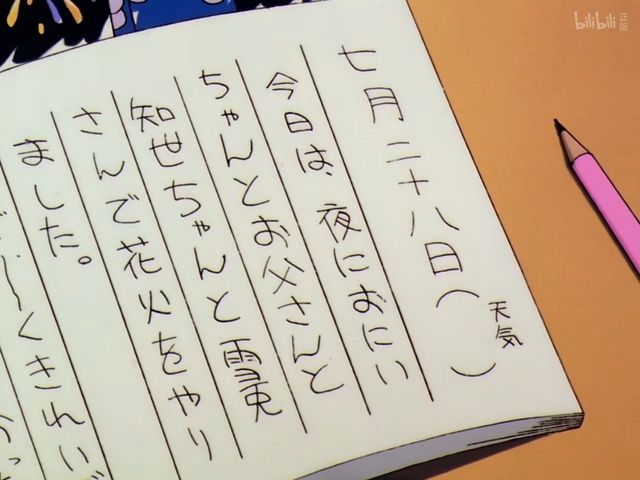 七月二十八日(天気 )
今日は、夜におにい
ちゃんとお父さんと
知世ちゃんと雪兎
さんで花火をやり
ました。
くきれい
bilibili 正版